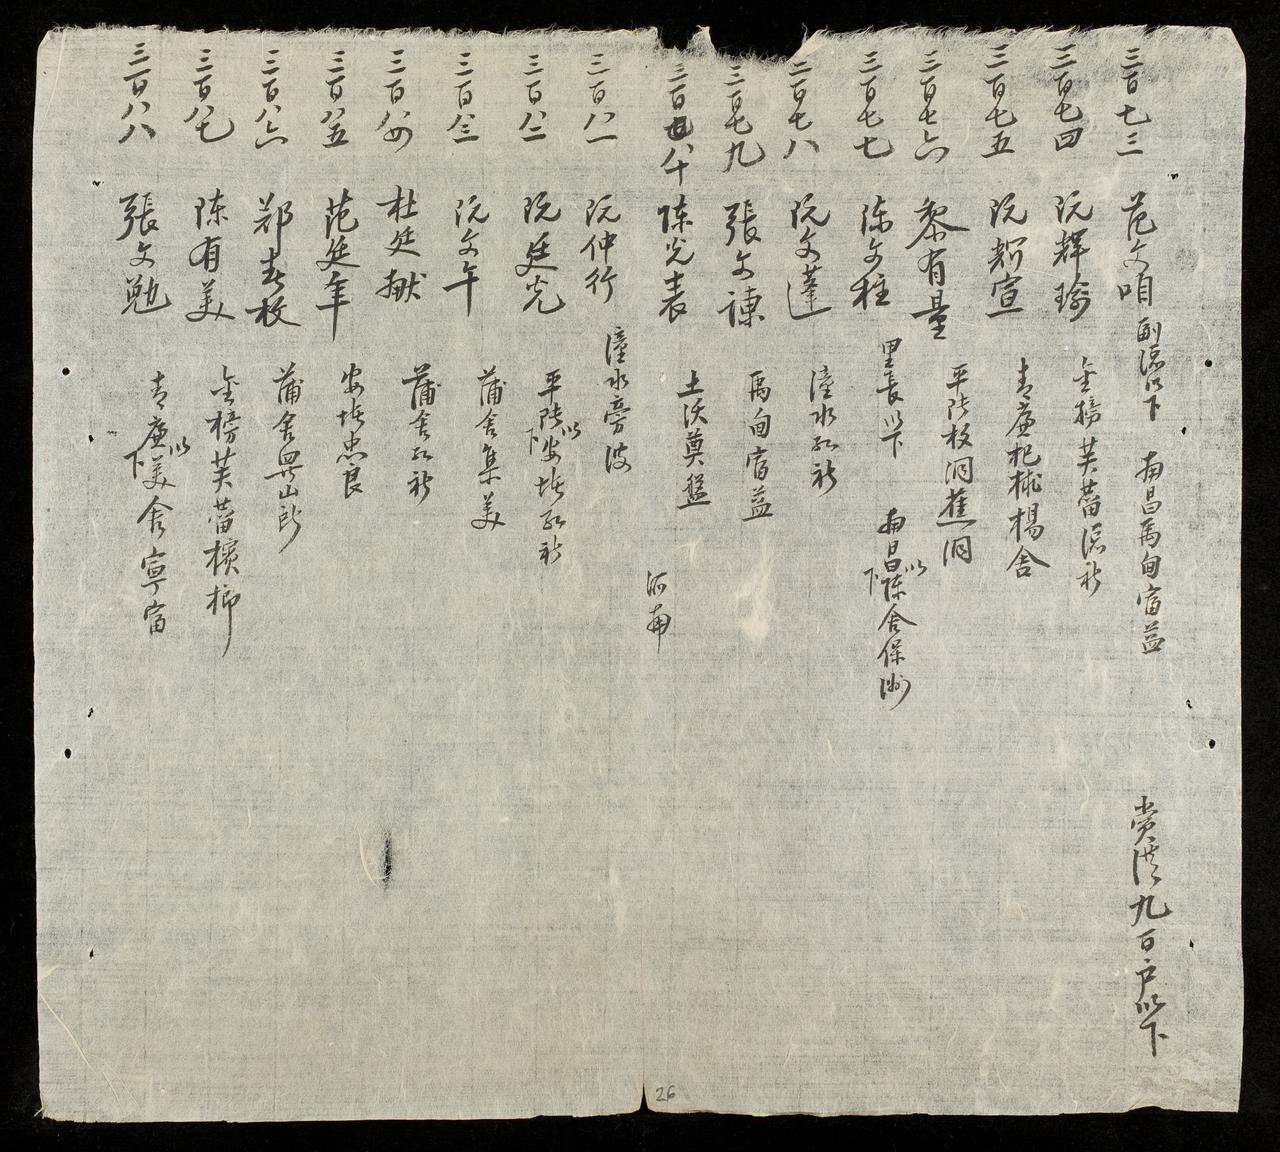 三百七三 范文咱 副總以下 南昌禹甸富益 賞洪九百户以下
三百七四 阮輝瑜 金榜芙蕾總社
三百七五 阮輝宣 青廉杞梂楊舍
三百七六 黎有量 平陸枚洞蕉洞
三百七七 陳文柱 里長以下 南昌以下陳舍保洲
三百七八 阮文蓬 潼水社
三百七九 張文諫 禹甸富益
三百八十 陳光表 土沃奠盤
河南
三百八一 阮仲行 潼水旁波
三百八二 阮廷光 平陸以下安堆社
三百八三 阮文午 蒲舍集美
三百八四 杜廷猷 蒲舍社
三百八五 范廷年 安堆忠良
三百八六 鄭春枚 蒲舍山
三百八七 陳有美 金榜芙蕾檳榔
三百八八 張文勉 青廉以下美舍寧富
26